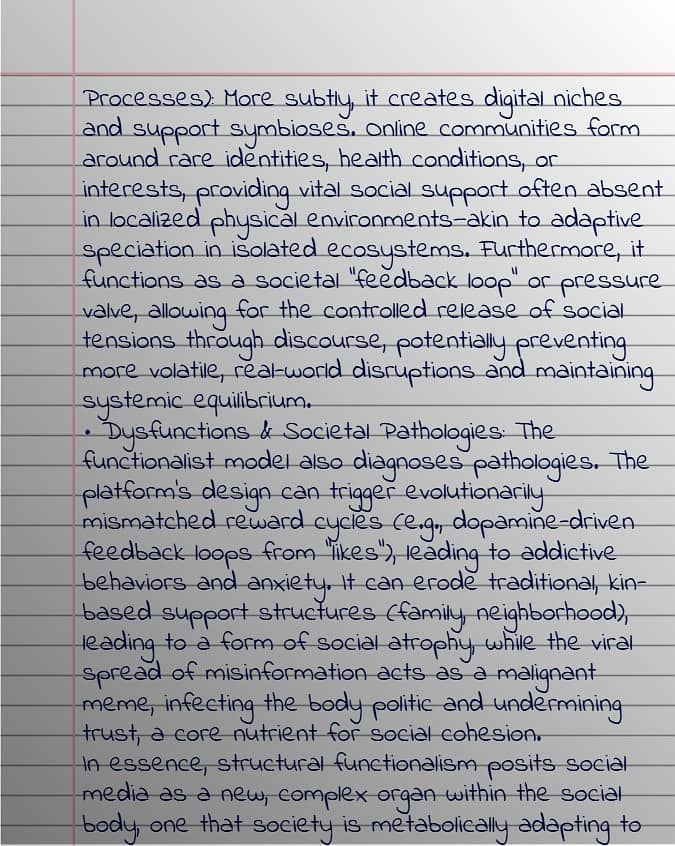 Processes): More subtly, it creates digital niches
and support symbioses. Online communities form
around rare identities, health conditions, or
interests, providing vital social support often absent
in localized physical environments—akin to adaptive
speciation in isolated ecosystems. Furthermore, it
functions as a societal "feedback loop" or pressure
valve, allowing for the controlled release of social
tensions through discourse, potentially preventing
more volatile, real-world disruptions and maintaining
systemic equilibrium.
• Dysfunctions & Societal Pathologies: The
functionalist model also diagnoses pathologies. The
platform's design can trigger evolutionarily
mismatched reward cycles (e.g., dopamine-driven
feedback loops from "likes"), leading to addictive
behaviors and anxiety. It can erode traditional, kin-
based support structures (family, neighborhood),
leading to a form of social atrophy, while the viral
spread of misinformation acts as a malignant
meme, infecting the body politic and undermining
trust, a core nutrient for social cohesion.
In essence, structural functionalism posits social
media as a new, complex organ within the social
body, one that society is metabolically adapting to